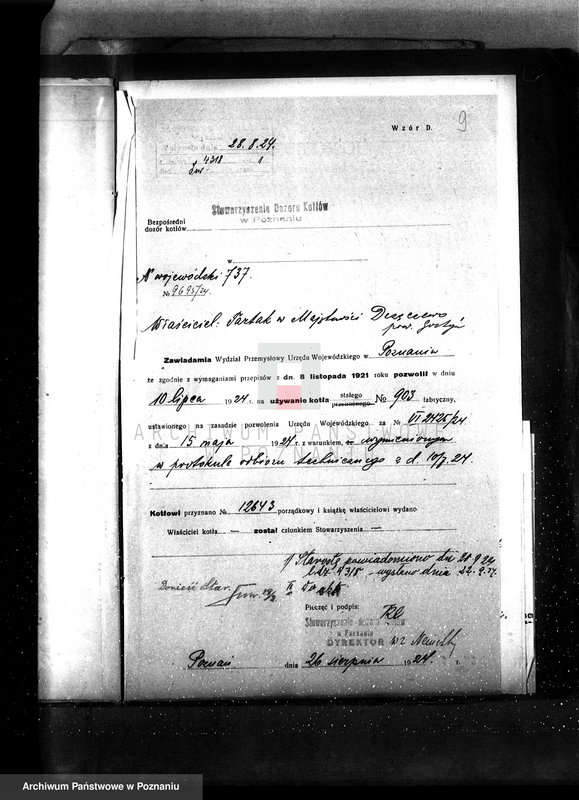 Wzór D.
9
28.8.24.
4318 1
Stowarzyszenie Dozoru Kotłów
w Poznaniu
Bezpośredni
dozór kotłów
w
N wojewódzki 737.
№ 9695/24.
Właściciel: Tartak w Majętności
pow. Gostyń
Zawiadamia Wydział Przemysłowy Urzędu Wojewódzkiego w Poznaniu
że zgodnie z wymaganiami przepisów z dn. 8 listopada 1921 roku pozwolił w dniu
10 lipca 1924 r. na używanie kotła stałego przenośnego № 903 fabryczny,
ustawionego na zasadzie pozwolenia Urzędu Wojewódzkiego za № VI 2425/24
z dnia 15 maja 1924 r. z warunkiem, wymienionym
w protokule odbioru technicznego z d. 10/7.24.
ARCHIWUM PAŃSTWOWE
POZNAŃ
Kotłowi przyznano № 12643 porządkowy i książkę właścicielowi wydano
Właściciel kotła — został członkiem Stowarzyszenia —
I/ Starostę powiadomiono dn 20.9.24
L.dz. 4318 - wysłano dnia 22.9.24.
Donieść Star.
II Do akt
Pieczęć i podpis:
Stowarzyszenie dozoru kotłów
w Poznaniu
DYREKTOR
Poznań dnia 26 sierpnia 1924. r.
Archiwum Państwowe w Poznaniu